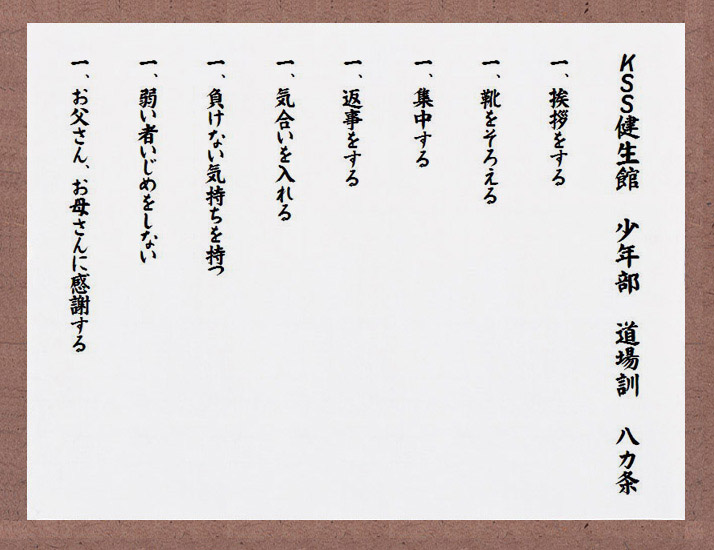 KSS健生館 少年部 道場訓 八カ条
一、挨拶をする
一、靴をそろえる
一、集中する
一、返事をする
一、気合いを入れる
一、負けない気持ちを持つ
一、弱い者いじめをしない
一、お父さん、お母さんに感謝する